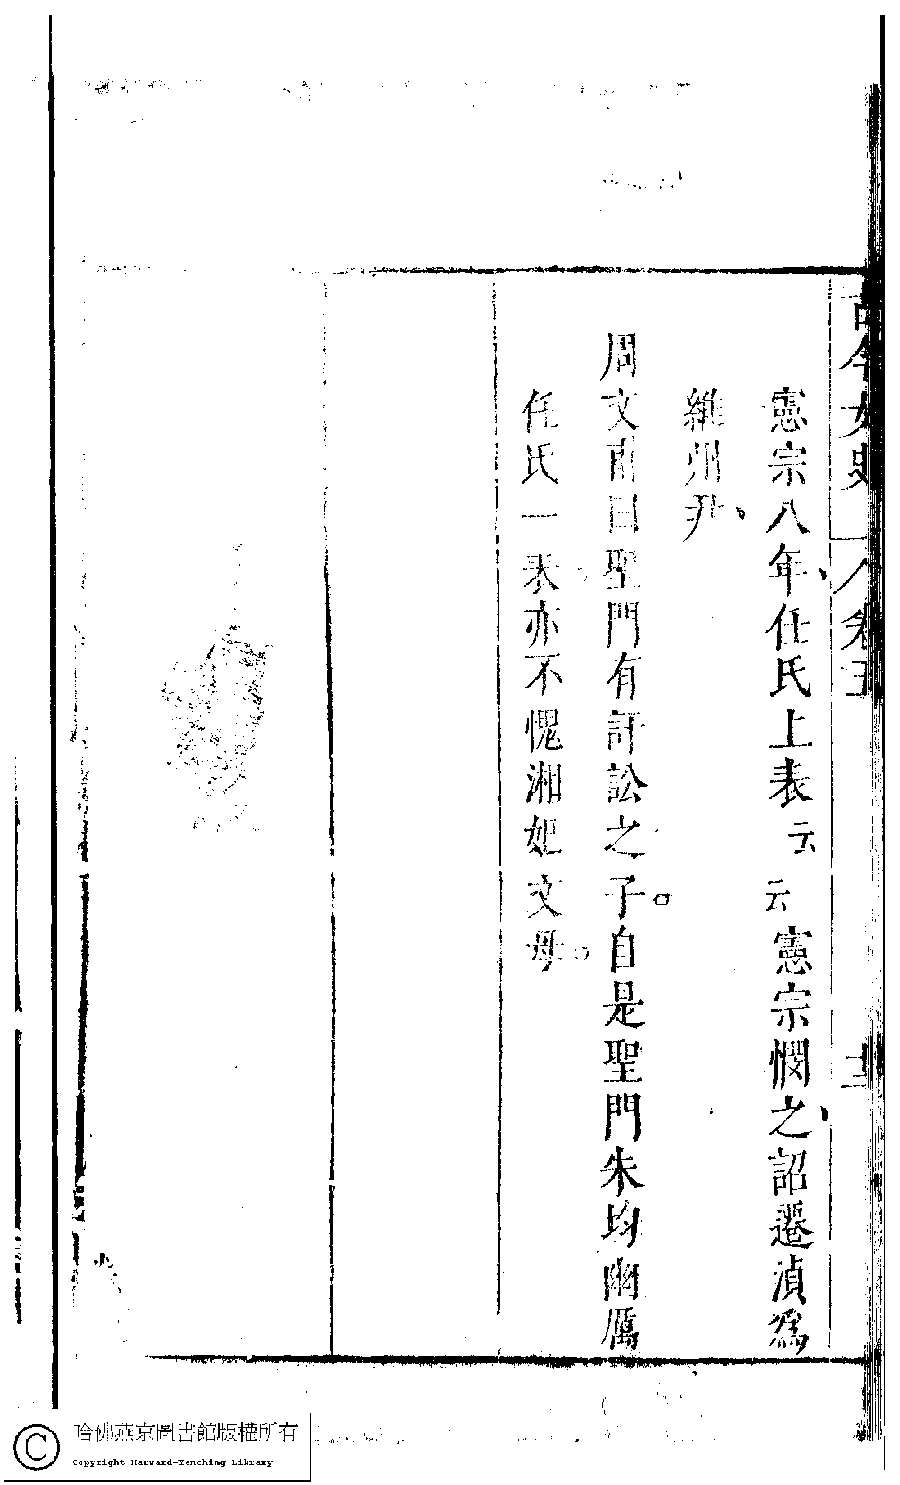 古今女史 卷五 十二
憲宗八年任氏上表云云憲宗憫之詔遷滇爲
維州尹
周文甫曰聖門有訐訟之子自是聖門朱均幽厲
任氏一表亦不愧湘妃文母
哈佛燕京圖書館版權所有
Copyright Harvard-Yenching Library